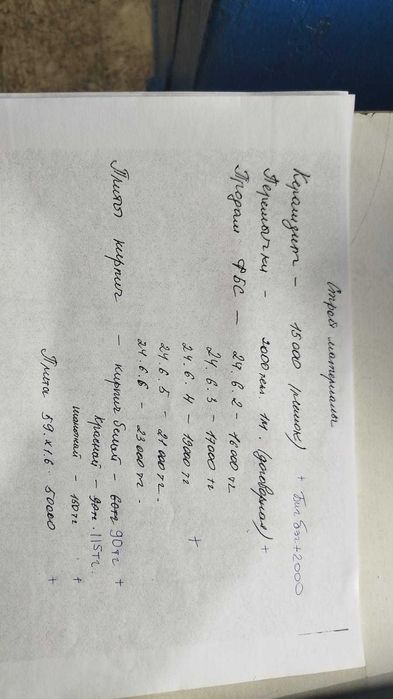 Строй материалы
Керамзит – 15 000 (мешок) + Биг бэг + 2000
Перемычки – 2000 пог. 1м. (договорная) +
Продам ФБС – 24.6.2 – 16 000 тг
24.6.3 – 17000 тг
24.6.4 – 19000 тг +
24.6.5 – 21 000 тг.
24.6.6 – 23 000 тг.
Плиты кирпич – кирпич белый – 90 тг +
красный – 115 тг.
шамотный – 150 тг +
Плита 59. х 1.6. 50000 +